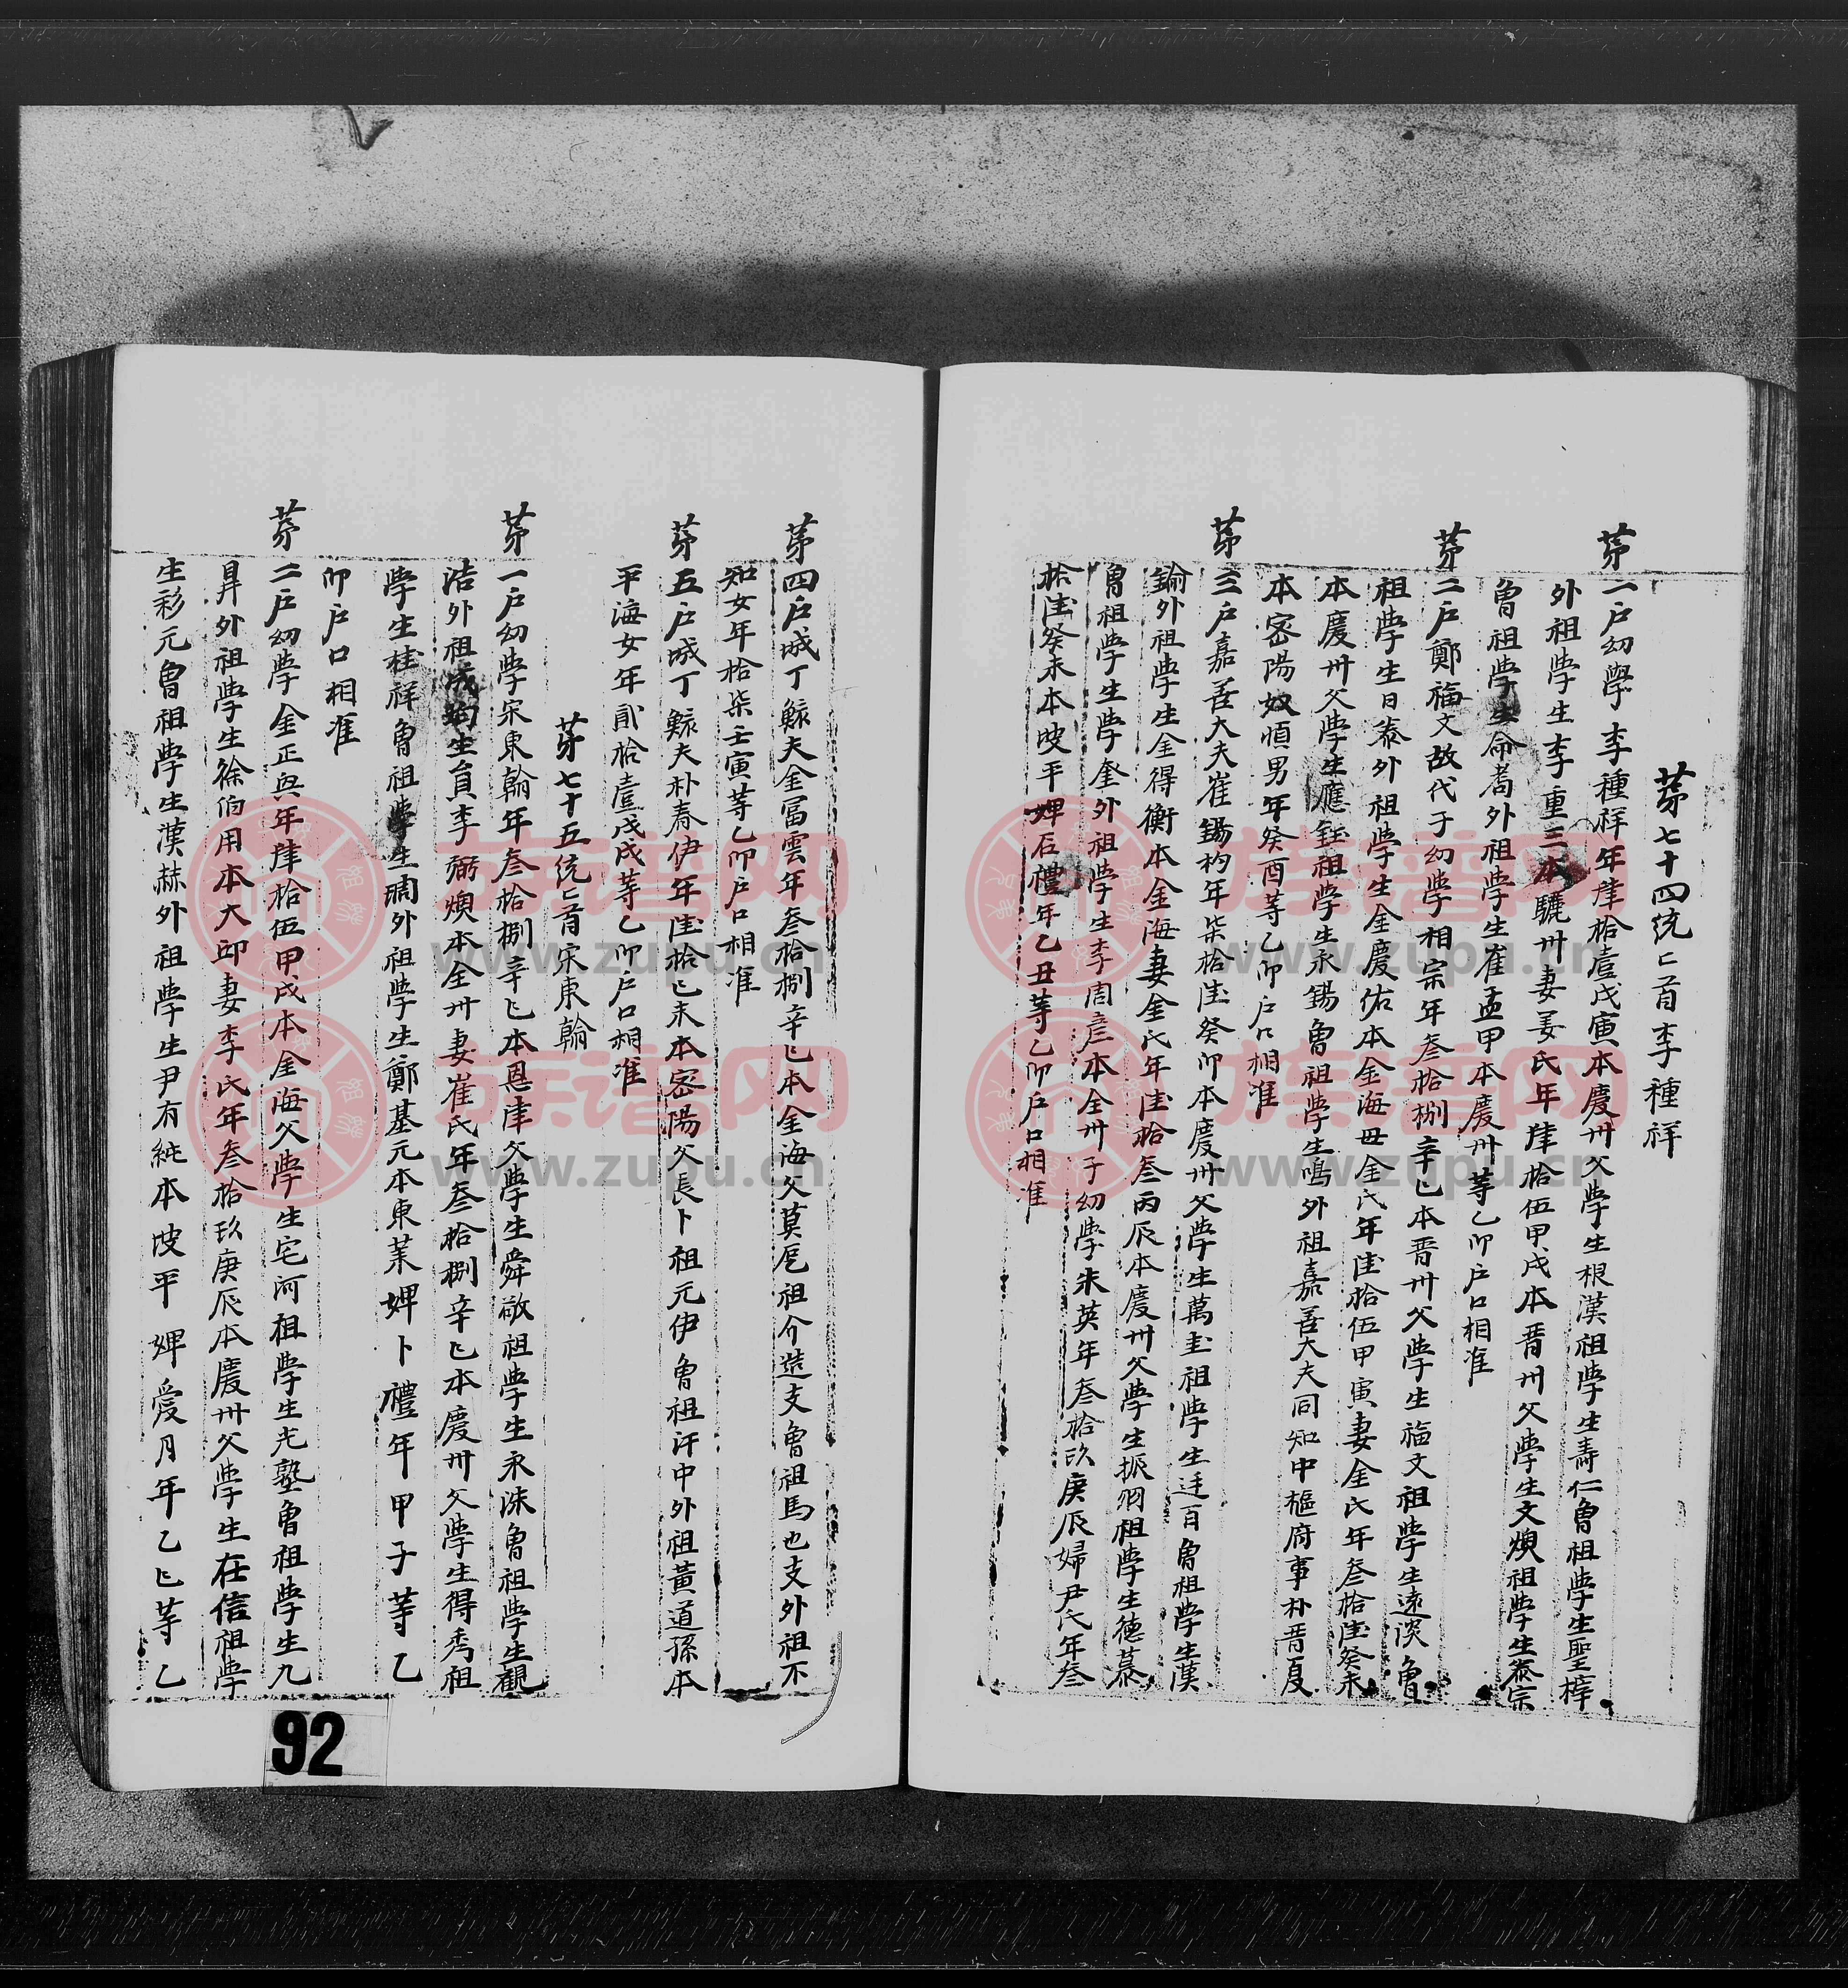 苐七十四統㔾首李種祥
苐一戶幼學李種祥年肆拾壹戊寅本慶州父學生根漢祖學生壽仁曾祖學生聖梓
外祖學生李重三本驪州妻姜氏年肆拾伍甲戌本晋州父學生文煥祖學生泰宗
曾祖學生命嵩外祖學生崔孟甲本慶州等乙卯戶口相准
苐二戶鄭福文故代子幼學相宗年叁拾捌辛巳本晋州父學生福文祖學生遠淡曾
祖學生日泰外祖學生金慶佑本金海母金氏年陸拾伍甲寅妻金氏年叁拾陸癸未
本慶州父學生應鈺祖學生永錫曾祖學生鳴外祖嘉善大夫同知中樞府事朴晋夏
本密陽奴順男年癸酉等乙卯戶口相准
苐三戶嘉善大夫崔錫杓年柒拾陸癸卯本慶州父學生萬圭祖學生廷百曾祖學生漢
鍮外祖學生金得衡本金海妻金氏年陸拾叁丙辰本慶州父學生振羽祖學生德慕
曾祖學生學奎外祖學生李周彦本全州子幼學朱英年叁拾玖庚辰婦尹氏年叁
拾陸癸未本坡平婢石禮年乙丑等乙卯戶口相准
苐四戶城丁鰥夫金冨雲年叁拾捌辛巳本金海父莫巵祖介造支曾祖馬也支外祖不
知女年拾柒壬寅等乙卯戶口相准
苐五戶城丁鰥夫朴春伊年陸拾巳未本密陽父長卜祖元伊曾祖汗中外祖黃道孫本
平海女年貳拾壹戊戌等乙卯戶口相准
苐七十五統㔾首宋東翰
苐一戶幼學宋東翰年叁拾捌辛巳本恩津父學生舜敬祖學生永洙曾祖學生觀
浩外祖成均生員李弼煥本全州妻崔氏年叁拾捌辛巳本慶州父學生得秀祖
學生桂祥曾祖學生琱外祖學生鄭基元本東萊婢卜禮年甲子等乙
卯戶口相准
苐二戶幼學金正與年肆拾伍甲戌本金海父學生宅河祖學生光塾曾祖學生九
昇外祖學生徐伯用本大邱妻李氏年叁拾玖庚辰本慶州父學生在信祖學
生彩元曾祖學生漢赫外祖學生尹有純本坡平婢愛月年乙巳等乙
92
族谱网
www.zupu.cn
族谱网
www.zupu.cn
族谱网
www.zupu.cn
族谱网
www.zupu.cn